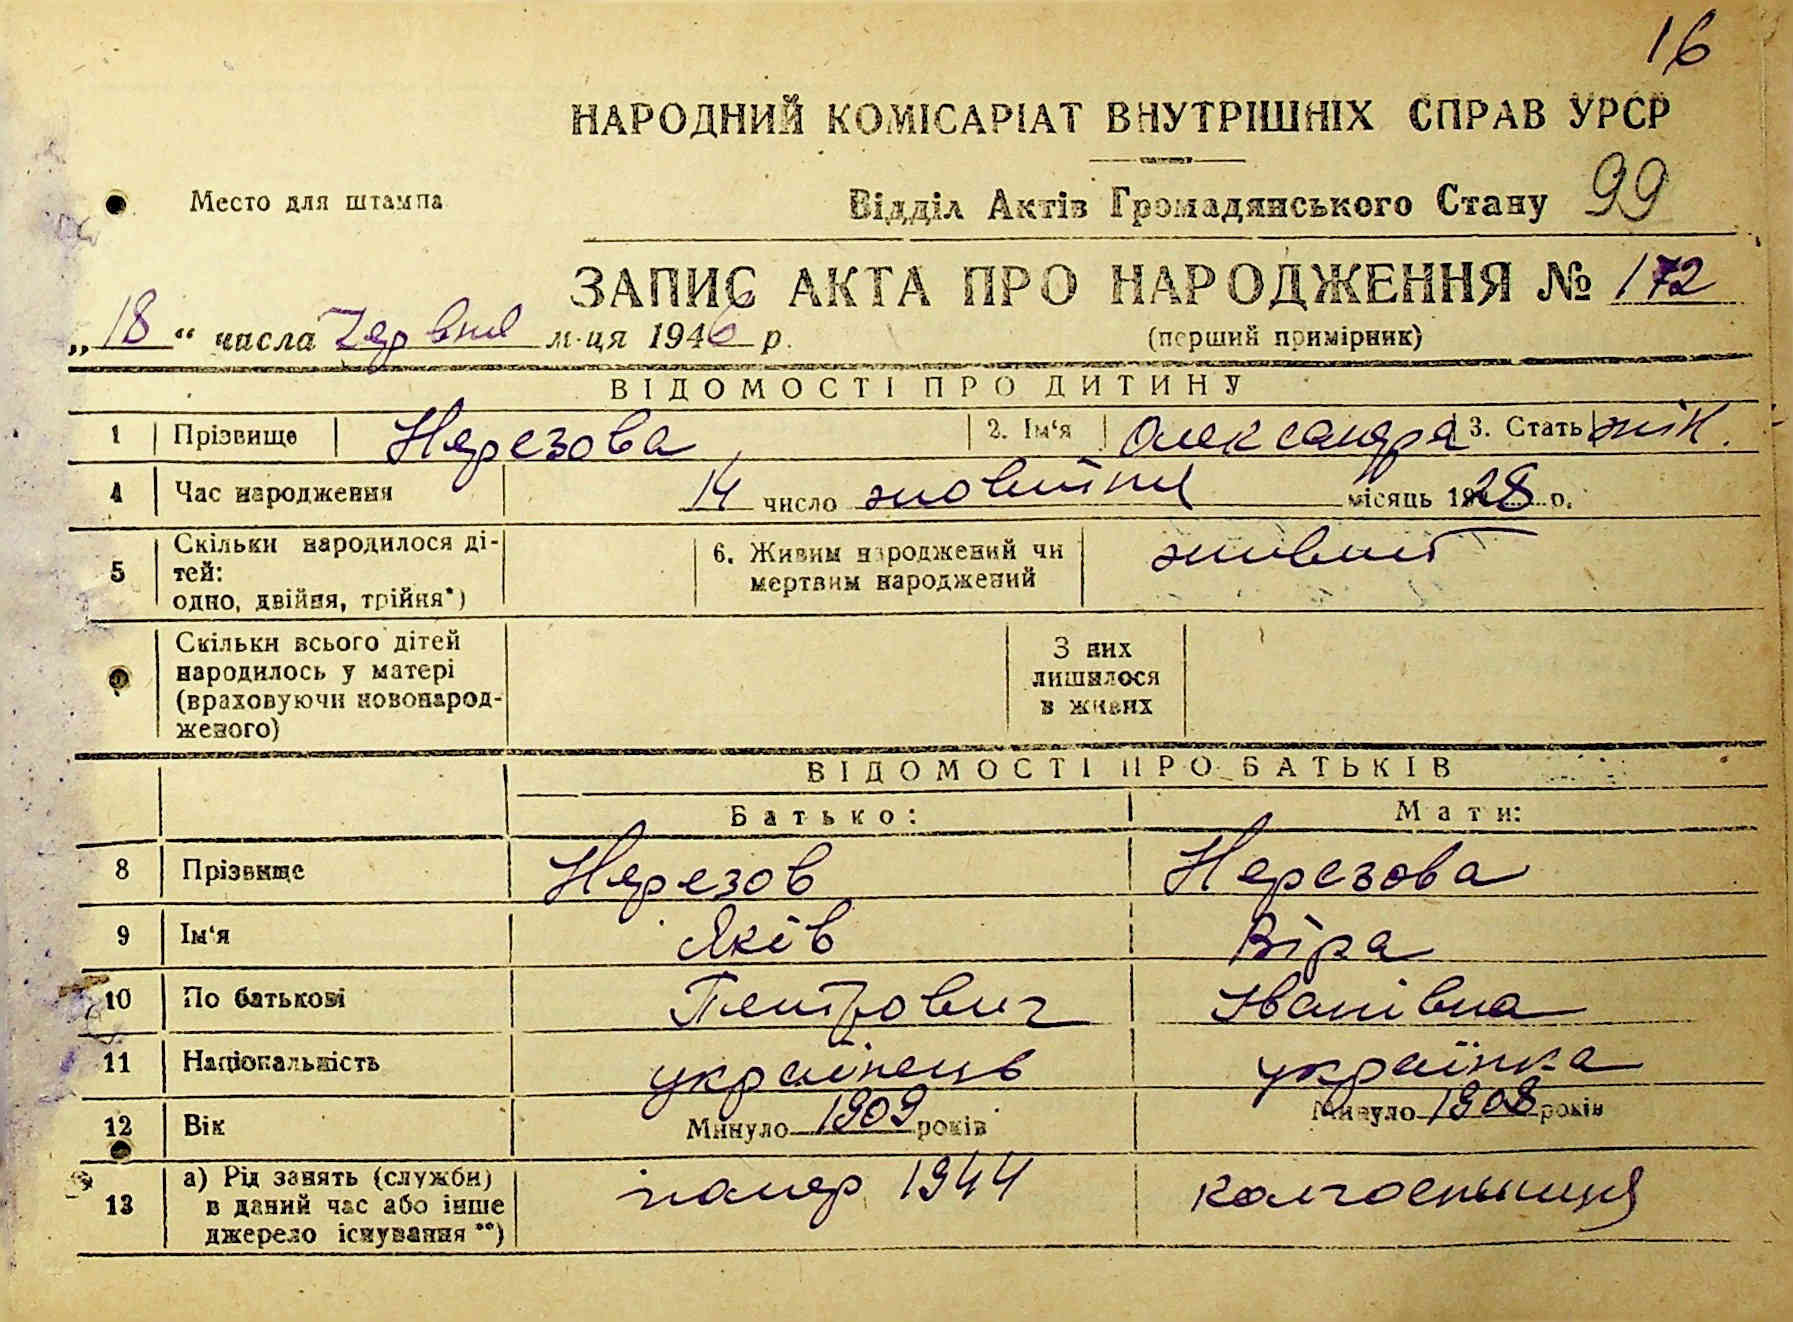 16
НАРОДНИЙ КОМІСАРІАТ ВНУТРІШНІХ СПРАВ УРСР
Место для штампа
Відділ Актів Громадянського Стану 99
ЗАПИС АКТА ПРО НАРОДЖЕННЯ № 172
„18“ числа Червня м-ця 1946 р.
(перший примірник)
ВІДОМОСТІ ПРО ДИТИНУ
1 Прізвище Нерезова 2. Ім‘я Олександра 3. Стать жін.
4 Час народження 14 число жовтня місяць 1928 р.
5 Скільки народилося ді-
тей:
одно, двійня, трійня*)
6. Живим народжений чи
мертвим народжений
живим
Скільки всього дітей
народилось у матері
(враховуючи новонарод-
женого)
З них
лишилося
в живих
ВІДОМОСТІ ПРО БАТЬКІВ
Батько: Мати:
8 Прізвище Нерезов Нерезова
9 Ім‘я Яків Віра
10 По батькові Петрович Іванівна
11 Національність українець українка
12 Вік Минуло 1909 років Минуло 1908 років
13 а) Рід занять (службн)
в даний час або інше
джерело існування **)
помер 1944 колгоспниця